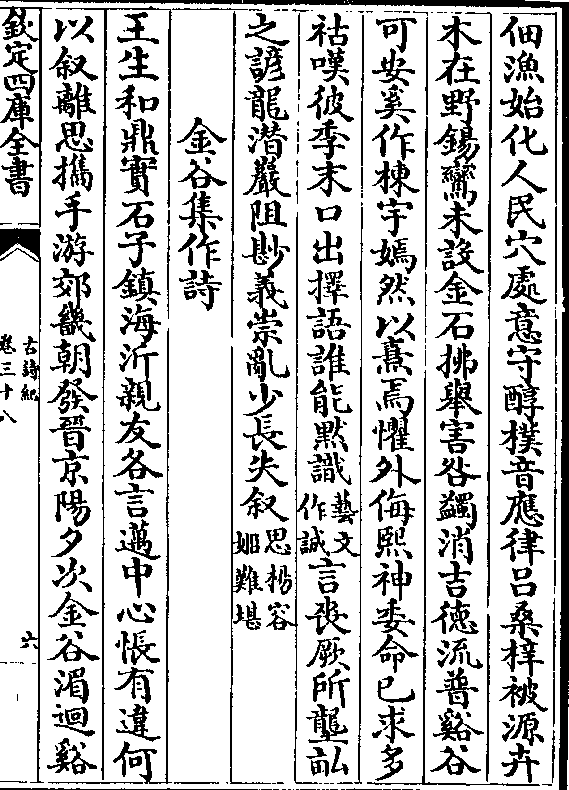 佃漁始化人民穴處意守醇樸音應律呂桑梓被源卉
木在野錫鸞未設金石拂舉害咎蠲消吉徳流普谿谷
可安奚作棟宇嫣然以熹焉懼外侮熙神委命已求多
祜嘆彼季末口出擇語誰能黙識藝文作誠言喪厥所壟畝
之諺龍潜巖阻尠義崇亂少長失叙思楊容姬難堪
金谷集作詩
王生和鼎實石子鎮海沂親友各言邁中心悵有違何
以叙離思攜手游郊畿朝發晉京陽夕次金谷湄迴谿
欽定四庫全書
古詩紀
卷三十八
六